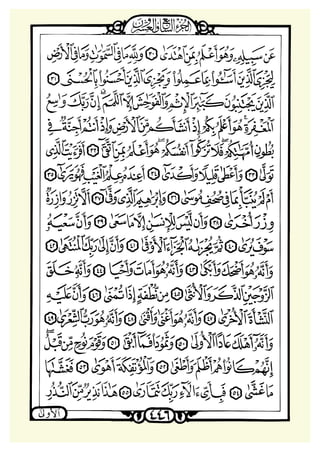 الجزء السابع والعشرون
عَن سَبِيلِهِۦ وَهُوَ أَعْلَمُ بِمَنِ ٱهْتَدَىٰ ٣٠ وَلِلَّهِ مَا فِى ٱلسَّمَٰوَٰتِ وَمَا فِى ٱلْأَرْضِ
لِيَجْزِىَ ٱلَّذِينَ أَسَٰٓـُٔوا۟ بِمَا عَمِلُوا۟ وَيَجْزِىَ ٱلَّذِينَ أَحْسَنُوا۟ بِٱلْحُسْنَى ٣١
ٱلَّذِينَ يَجْتَنِبُونَ كَبَٰٓئِرَ ٱلْإِثْمِ وَٱلْفَوَٰحِشَ إِلَّا ٱللَّمَمَ إِنَّ رَبَّكَ وَٰسِعُ
ٱلْمَغْفِرَةِ هُوَ أَعْلَمُ بِكُمْ إِذْ أَنشَأَكُم مِّنَ ٱلْأَرْضِ وَإِذْ أَنتُمْ أَجِنَّةٌ فِى
بُطُونِ أُمَّهَٰتِكُمْ فَلَا تُزَكُّوٓا۟ أَنفُسَكُمْ هُوَ أَعْلَمُ بِمَنِ ٱتَّقَىٰٓ ٣٢ أَفَرَءَيْتَ ٱلَّذِى
تَوَلَّىٰ ٣٣ وَأَعْطَىٰ قَلِيلًا وَأَكْدَىٰٓ ٣٤ أَعِندَهُۥ عِلْمُ ٱلْغَيْبِ فَهُوَ يَرَىٰٓ ٣٥
أَمْ لَمْ يُنَبَّأْ بِمَا فِى صُحُفِ مُوسَىٰ ٣٦ وَإِبْرَٰهِيمَ ٱلَّذِى وَفَّىٰٓ ٣٧ أَلَّا تَزِرُ وَازِرَةٌ
وِزْرَ أُخْرَىٰ ٣٨ وَأَن لَّيْسَ لِلْإِنسَٰنِ إِلَّا مَا سَعَىٰ ٣٩ وَأَنَّ سَعْيَهُۥ
سَوْفَ يُرَىٰ ٤٠ ثُمَّ يُجْزَىٰهُ ٱلْجَزَآءَ ٱلْأَوْفَىٰ ٤١ وَأَنَّ إِلَىٰ رَبِّكَ ٱلْمُنتَهَىٰ ٤٢
وَأَنَّهُۥ هُوَ أَضْحَكَ وَأَبْكَىٰ ٤٣ وَأَنَّهُۥ هُوَ أَمَاتَ وَأَحْيَا ٤٤ وَأَنَّهُۥ خَلَقَ
ٱلزَّوْجَيْنِ ٱلذَّكَرَ وَٱلْأُنثَىٰ ٤٥ مِن نُّطْفَةٍ إِذَا تُمْنَىٰ ٤٦ وَأَنَّ عَلَيْهِ
ٱلنَّشْأَةَ ٱلْأُخْرَىٰ ٤٧ وَأَنَّهُۥ هُوَ أَغْنَىٰ وَأَقْنَىٰ ٤٨ وَأَنَّهُۥ هُوَ رَبُّ ٱلشِّعْرَىٰ ٤٩
وَأَنَّهُۥٓ أَهْلَكَ عَادًا ٱلْأُولَىٰ ٥٠ وَثَمُودَا۟ فَمَآ أَبْقَىٰ ٥١ وَقَوْمَ نُوحٍ مِّن قَبْلُ
إِنَّهُمْ كَانُوا۟ هُمْ أَظْلَمَ وَأَطْغَىٰ ٥٢ وَٱلْمُؤْتَفِكَةَ أَهْوَىٰ ٥٣ فَغَشَّىٰهَا
مَا غَشَّىٰ ٥٤ فَبِأَىِّ ءَالَآءِ رَبِّكَ تَتَمَارَىٰ ٥٥ هَٰذَا نَذِيرٌ مِّنَ ٱلنُّذُرِ
٤٤٦
الأولى